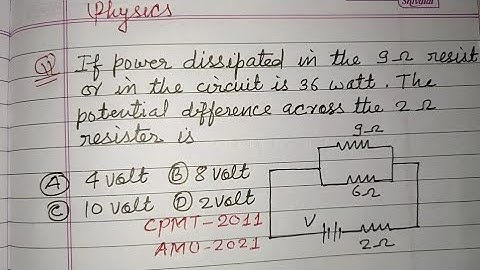 Shivalal
Physics
Q If power dissipated in the 9Ω resist
or in the circuit is 36 watt. The
potential difference across the 2 Ω
resister is
A 4 volt B 8 volt
C 10 volt D 2 volt
CPMT-2011
AMU-2021
9Ω
6Ω
V
2Ω